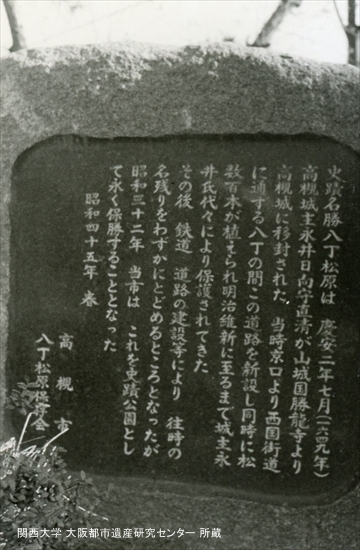 史蹟名勝八丁松原は 慶安二年七月(一六四九年)
高槻城主永井日向守直清が山城国勝龍寺より
高槻城に移封された 当時京口より西国街道
に通する八丁の間この道路を新設し同時に松
数百本が植えられ明治維新に至るまで城主永
井氏代々により保護されてきた
その後 鉄道 道路の建設等により 往時の
名残りをわずかにとどめるところとなったが
昭和三十二年 当市は これを史蹟公園とし
て永く保勝することとなった
昭和四十五年 春
高槻市
八丁松原保存会
関西大学 大阪都市遺産研究センター 所蔵